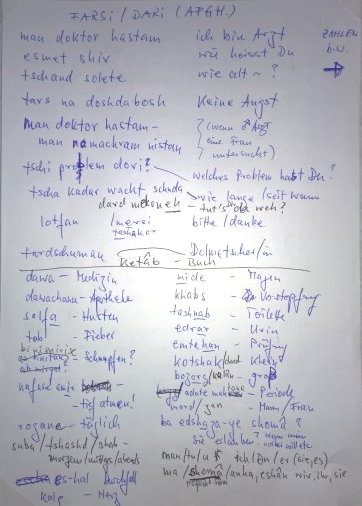 FARSI / DARI (AFGH.)
man doktor hastam ich bin Arzt ZAHLEN
esmet shiv wie heisst Du b.w.
tschand solete wie alt ~?
tars na doshda bosh Keine Angst
man doktor hastam - (wenn ♂ Arzt
man namachram nistam eine Frau
untersucht)
tschi problem dori? welches Problem hast Du?
tscha kadar wacht schuda wie lange / seit wann
dard mekoneh - tut's da weh?
lotfan / merci bitte / danke
taschakor
tardschuman - Dolmetscher/in
Ketâb - Buch
dawa - Medizin mide - Magen
dawachana - Apotheke khabs - Verstopfung
solfa - Husten tashnab - Toilette
tab - Fieber edrar - Urin
binirisie emtehan - Prüfung
Schnupfen? kotshak / - klein
bozorg / kalân - groß
nafase - adate mahane - Periode
tief atmen! mard / jan - Mann / Frau
rozane - täglich ba edshaza-ye shomâ?
suba / tshasht / shab - Sie erlauben?
morgen / mittags / abends man / tu / u ich / Du / er (sie, es)
es-hal Durchfall ma / shomâ / anha, eshân wir, ihr, sie
kalp - Herz